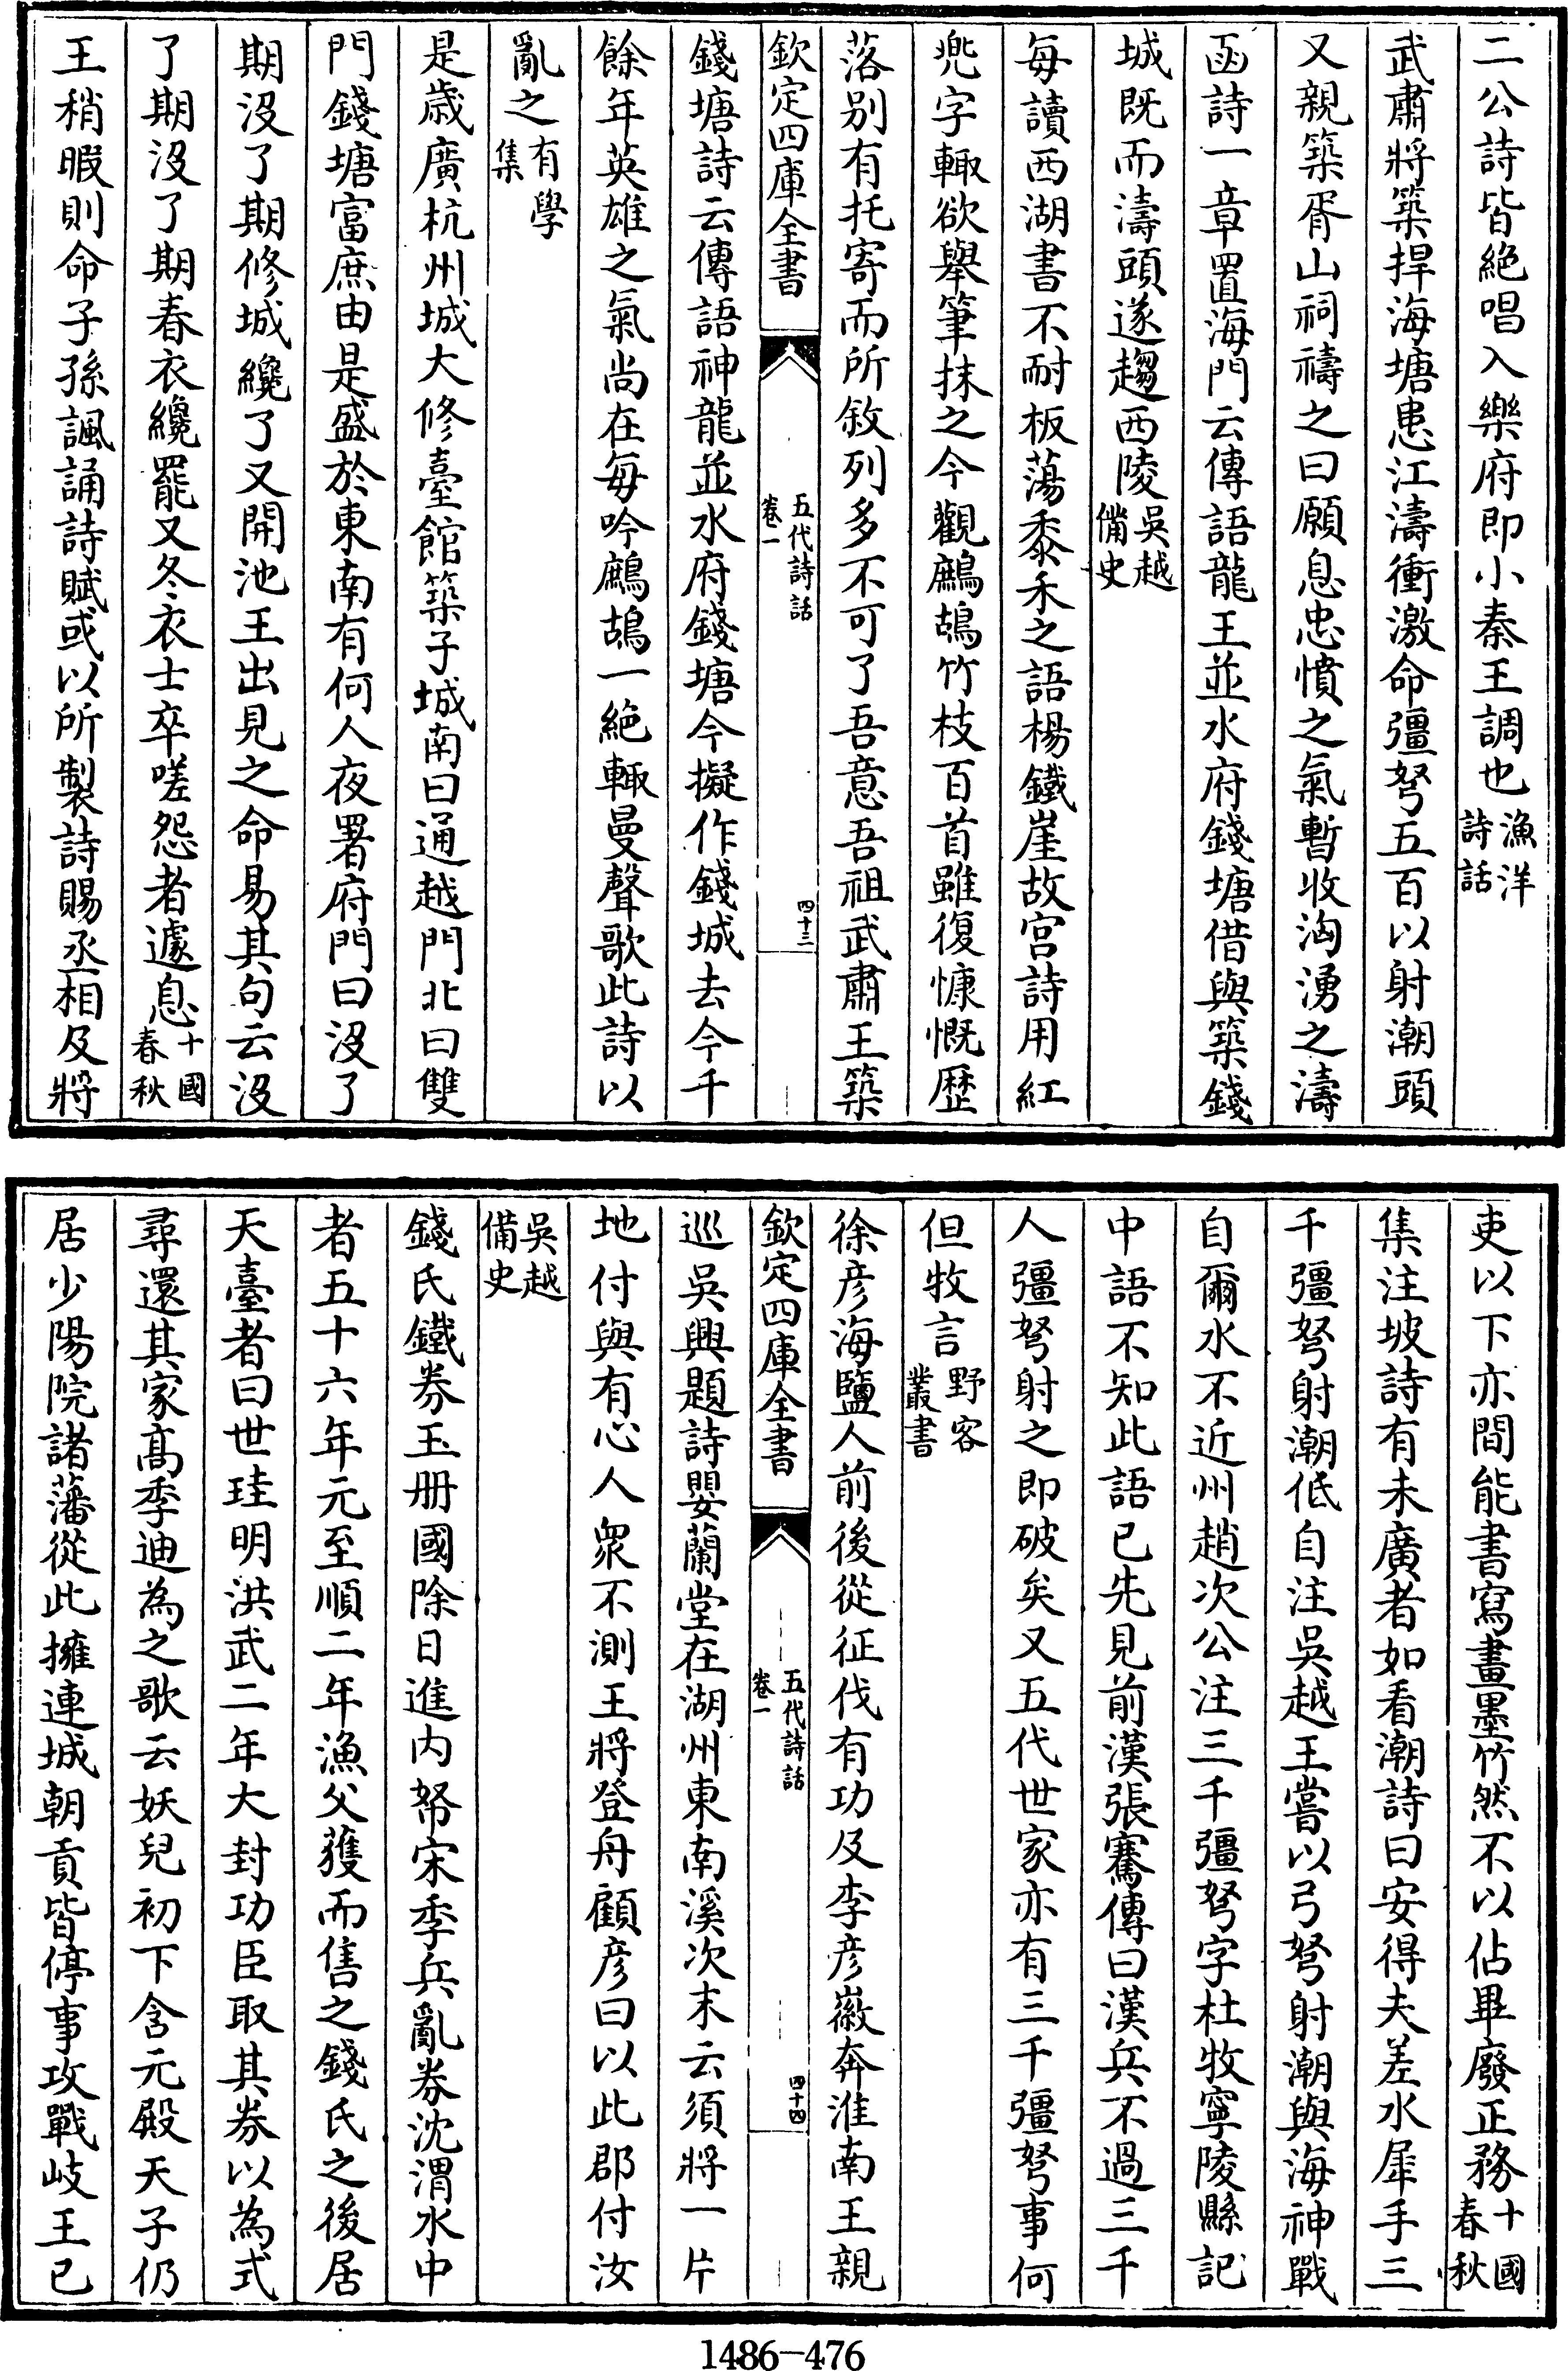 二公詩皆絶唱入樂府即小秦王調也漁洋詩話
武肅將築捍海塘患江濤衝激命彊弩五百以射潮頭
又親築胥山祠禱之曰願息忠憤之氣暫收洶湧之濤
函詩一章置海門云傳語龍王並水府錢塘借與築錢
城既而濤頭遂趨西陵吳越備史
每讀西湖書不耐板蕩黍禾之語楊鐵崖故宫詩用紅
兠字輙欲舉筆抹之今觀鷓鴣竹枝百首雖復慷慨歴
落别有托寄而所敘列多不可了吾意吾祖武肅王築
欽定四庫全書
五代詩話
卷一
四十三
錢塘詩云傳語神龍並水府錢塘今擬作錢城去今千
餘年英雄之氣尚在每吟鷓鴣一絶輙曼聲歌此詩以
亂之有學集
是歲廣杭州城大修臺館築子城南曰通越門北曰雙
門錢塘富庶由是盛於東南有何人夜署府門曰沒了
期沒了期修城纔了又開池王出見之命易其句云沒
了期沒了期春衣纔罷又冬衣士卒嗟怨者遽息十國春秋
王稍暇則命子孫諷誦詩賦或以所製詩賜丞相及將
吏以下亦間能書寫畫墨竹然不以佔畢廢正務十國春秋
集注坡詩有未廣者如看潮詩曰安得夫差水犀手三
千彊弩射潮低自注吳越王嘗以弓弩射潮與海神戰
自爾水不近州趙次公注三千彊弩字杜牧寧陵縣記
中語不知此語已先見前漢張騫傳曰漢兵不過三千
人彊弩射之即破矣又五代世家亦有三千彊弩事何
但牧言野客叢書
徐彦海鹽人前後從征伐有功及李彦徽奔淮南王親
欽定四庫全書
五代詩話
卷一
四十四
巡吳興題詩嬰蘭堂在湖州東南溪次末云須將一片
地付與有心人衆不測王將登舟顧彦曰以此郡付汝
吳越備史
錢氏鐵劵玉册國除日進内帑宋季兵亂劵沈渭水中
者五十六年元至順二年漁父獲而售之錢氏之後居
天臺者曰世珪明洪武二年大封功臣取其劵以為式
尋還其家髙季迪為之歌云妖兒初下含元殿天子仍
居少陽院諸藩從此擁連城朝貢皆停事攻戰岐王已
1486-476